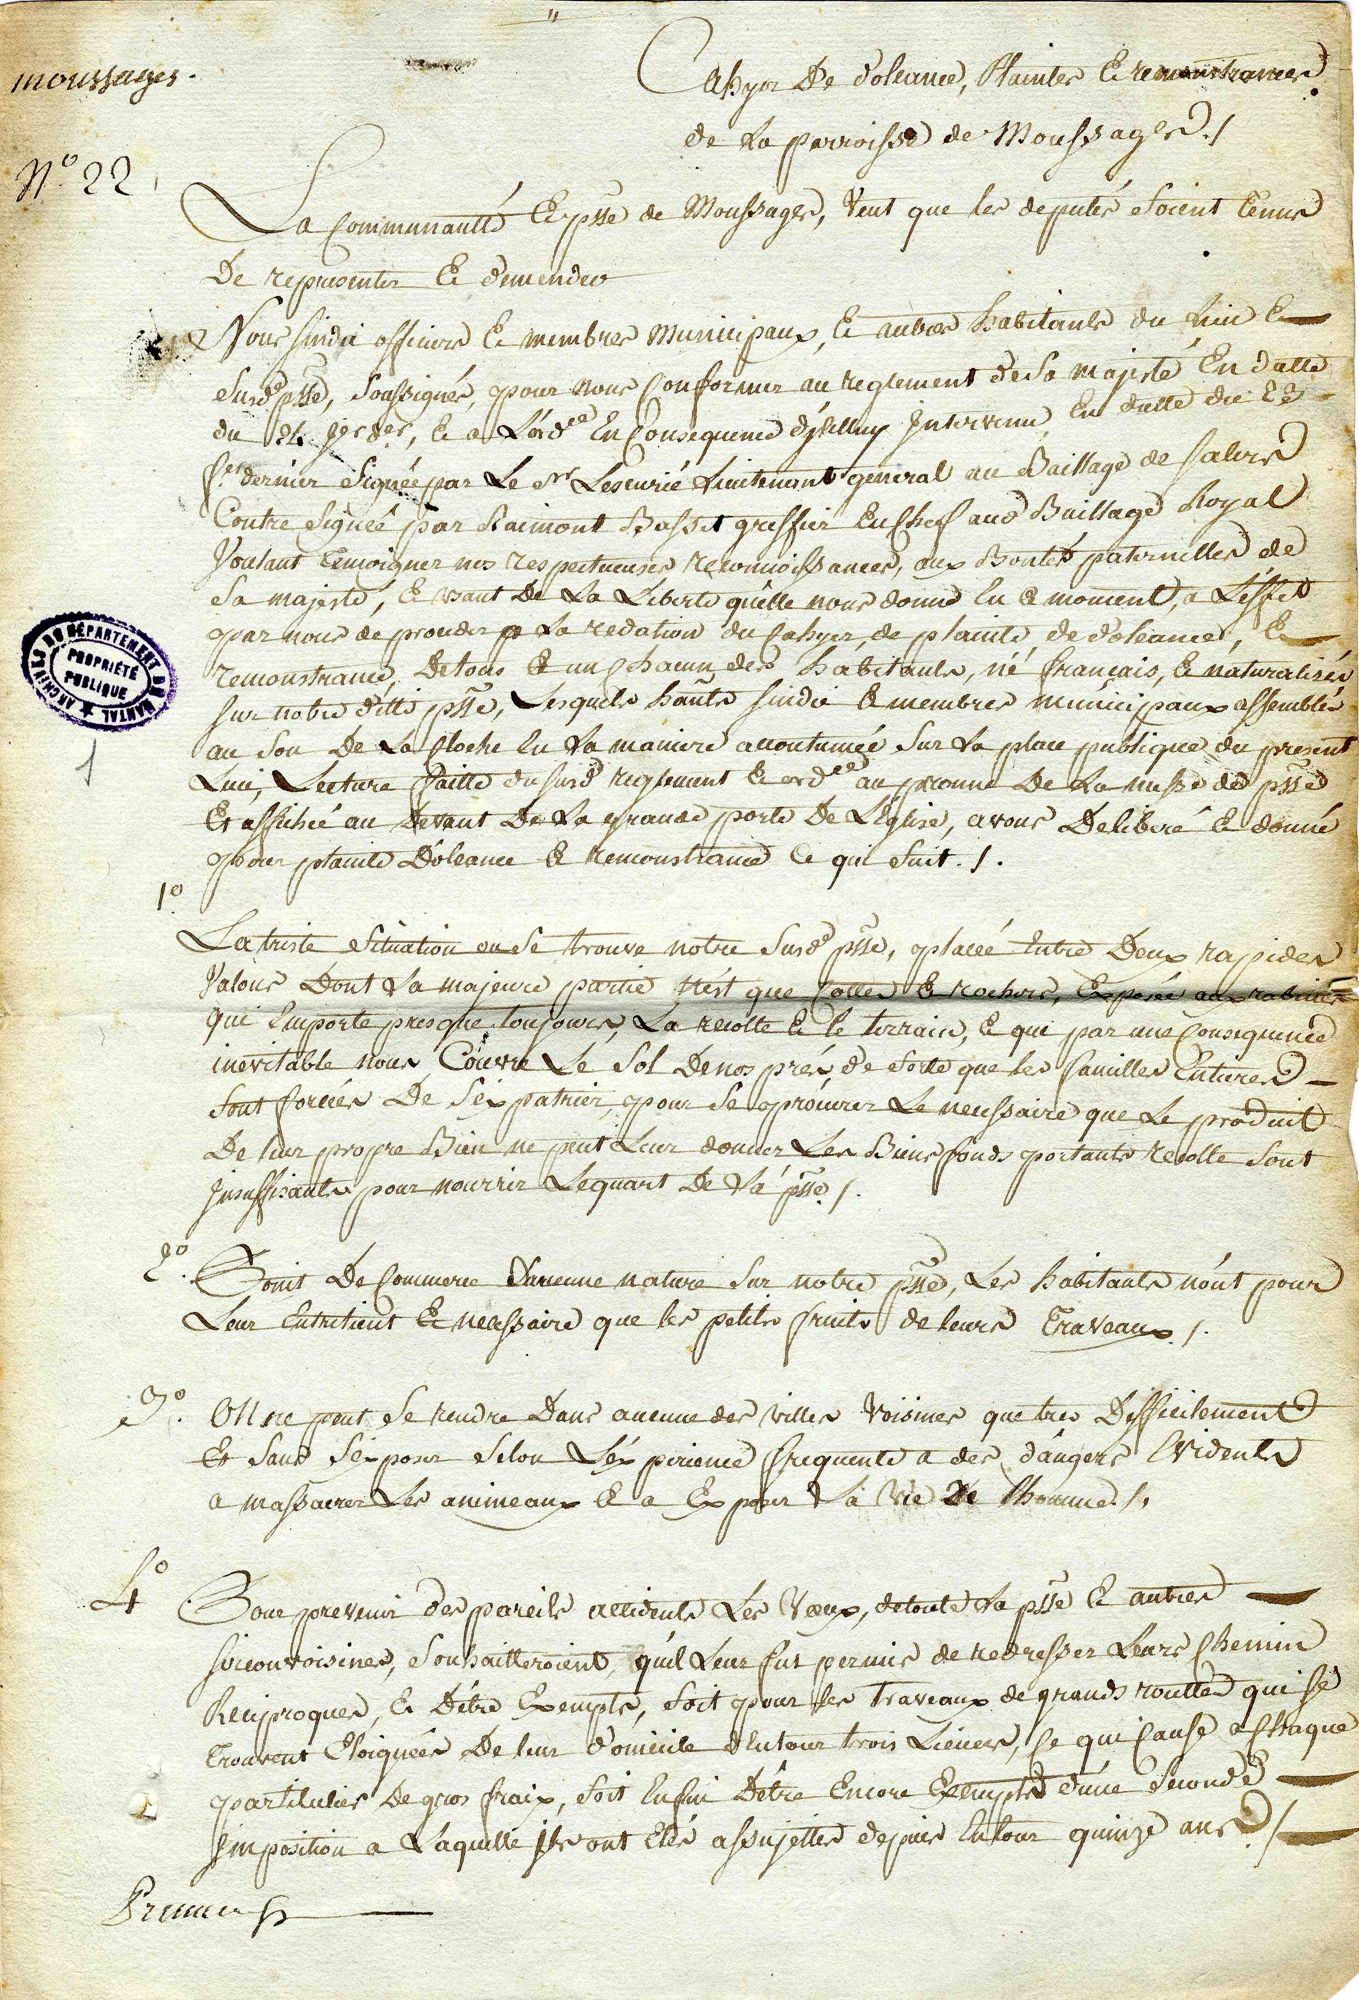 moussages.
N.º 22
Cahyer De d'oleance, Plaintes Et remonstrances
de La parroisse de Moussages ./
La Communautté Et psse de Moussages, Veut que les deputés soient tenus
De representer Et demender
Nous sindic officiers Et membres Municipaux, Et autres habitants du Lieu Et
susde psse, soussignés, pour nous Conformer au reglement de Sa majesté En datte
du 24 , Et a L'ordce En Consequence d'ycelluy Intervenue En datte du
fer dernier signée par Le sr Lescurié Lieutenant general au Baillage de salers
Contre signée par Raimont Basset greffier En Chef aud Baillage Royal
Voulant temoigner nos respectueuses reconnoissances, aux Bontés paternelles de
Sa majesté, Et usant De La Liberté qu'elle nous donne En ce moment, a L'effet
par nous de proceder a La redation du Cahyer, de plainte, de d'oleance, Et
remonstrance, De tous Et un Chacun des habitants, né français, Et naturalisés
sur notre ditte psse, Lesquels hants sindic Et membres municipaux assemblés
au son De La Cloche En La maniere accoutumée sur La place publique du present
Lieu, Lecture faitte du susd reglement Et ordce au pronne De La messe de psse
Et affichée au Devant De La grande porte De L'Eglise, avons Deliberé Et donné
pour plainte D'oleance Et remonstrance Ce qui suit ./.
1º
La triste situation ou se trouve notre susde psse, placée Entre Deux rapides
Valons Dont La majeure partie N'est que Cottes Et rochers, Exposée aux rabines
qui Emporte presque toujours, La recolte Et le terrain, Et qui par une Consequence
inevitable nous Couvre Le sol De nos prés, de sorte que les familles Entieres
sont forcées De s'expatrier, pour se procurer Le necessaire que Le produit
De leur propre Bien ne peut Leur donner Les Biens fonds portants recolte sont
Insuffisants pour nourrir Le quart De La psse ./.
2º. Point De Commerce D'aucune nature sur notre psse, Les habitants n'ont pour
Leur Entretient Et necessaire que les petits fruits de leurs Traveaux ./.
3º. On ne peut se rendre Dans aucune des villes Voisines que tres Difficilement
Et sans s'exposer selon L'experience frequente a des dangers Evidents
a massacrer Les animeaux Et a Exposer La Vie De l'homme ./.
4º Pour prevenir des pareils accidents Les Vœux, de toute La psse Et autres
sirconvoisines, souhaitteroient, qu'il Leur fut permis de redresser Leurs Chemin
Reciproques, Et D'être Exempts, soit pour les traveaux de grands routtes qui se
trouvent Eloignées De leur domicile d'Entour trois Lieues, Ce qui Cause a Chaque
particulier De gros fraix, soit Enfin D'être Encore Exempts d'une seconde
Imposition a Laquelle ils ont Etés assujettes depuis Entour quinze ans ./
ARCHIVES DU DÉPARTEMENT DU CANTAL
PROPRIÉTÉ PUBLIQUE
1